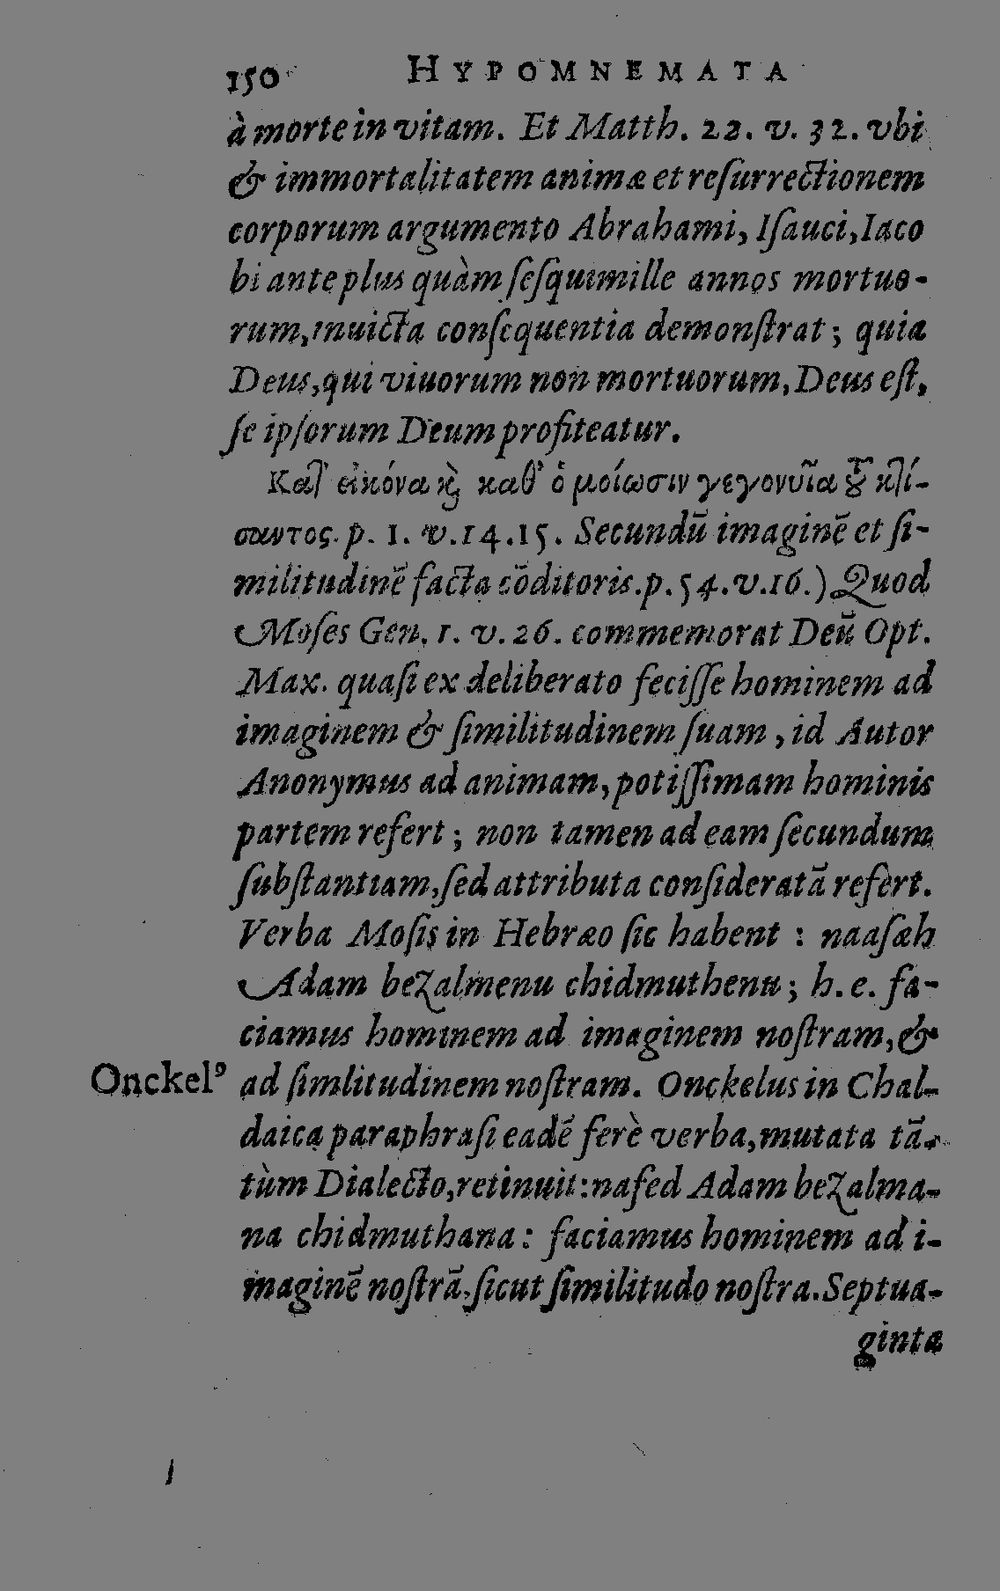 150 HYPOMNEMATA
à morte in vitam. Et Matth. 22. v. 32. vbi
& immortalitatem animæ et reſurrectionem
corporum argumento Abrahami, Iſauci, Iaco
bi ante plus quàm ſeſquimille annos mortuo-
rum, inuicta conſequentia demonſtrat; quia
Deus, qui viuorum non mortuorum, Deus eſt,
ſe ipſorum Deum profiteatur.
Κατ' εἰκόνα καὶ καθ' ὁμοίωσιν γεγονυῖα τοῦ κτί-
σαντος. p. 1. v. 14. 15. Secundũ imaginẽ et ſi-
militudinẽ facta cõditoris. p. 54. v. 16.) Quod
Moſes Gen. 1. v. 26. commemorat Deũ Opt.
Max. quaſi ex deliberato feciſſe hominem ad
imaginem & ſimilitudinem ſuam, id Autor
Anonymus ad animam, potiſſimam hominis
partem refert; non tamen ad eam ſecundum
ſubſtantiam, ſed attributa conſideratã refert.
Verba Moſis in Hebræo ſic habent : naaſæh
Adam bezalmenu chidmuthenu; h. e. fa-
ciamus hominem ad imaginem noſtram, &
Onckelꝰ
ad ſimlitudinem noſtram. Onckelus in Chal-
daica paraphraſi eadẽ ferè verba, mutata tã-
tùm Dialecto, retinuit: naſed Adam bezalma-
na chidmuthana: faciamus hominem ad i-
maginẽ noſtrã, ſicut ſimilitudo noſtra. Septua-
ginta